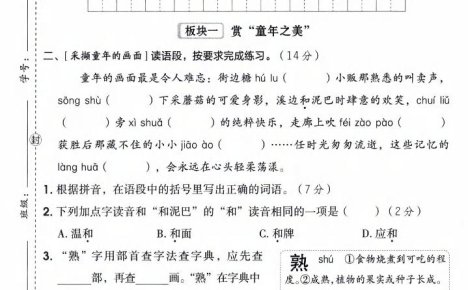 板块一 赏“童年之美”
二、[采撷童年的画面]读语段，按要求完成练习。(14分)
童年的画面最是令人难忘：街边糖 hú lu（ ）小贩那熟悉的叫卖声，
sōng shù（ ）下采蘑菇的可爱身影，溪边和泥巴时肆意的欢笑，chuí liǔ
（ ）旁 xì shuǎ（ ）的纯粹快乐，走廊上吹 féi zào pào（ ）
获胜后那藏不住的小小 jiāo ào（ ）……任时光匆匆流逝，这些记忆的
làng huā（ ），会永远在心头轻柔荡漾。
1. 根据拼音，在语段中的括号里写出正确的词语。(7分)
2. 下列加点字读音和“和泥巴”的“和”读音相同的一项是（ ）(2分)
A. 温和 B. 和面 C. 和牌 D. 应和
3. “熟”字用部首查字法查字典，应先查
______部，再查______画。“熟”在字典中
熟 shú ①食物烧煮到可吃的程
度。②成熟，植物的果实或种子长成。
学号：
封
班级：